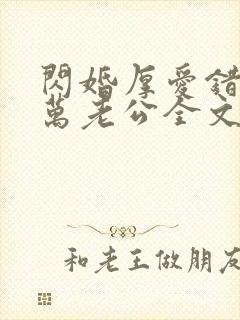 閃婚厚愛錯
萬老公全文
和老王做朋友